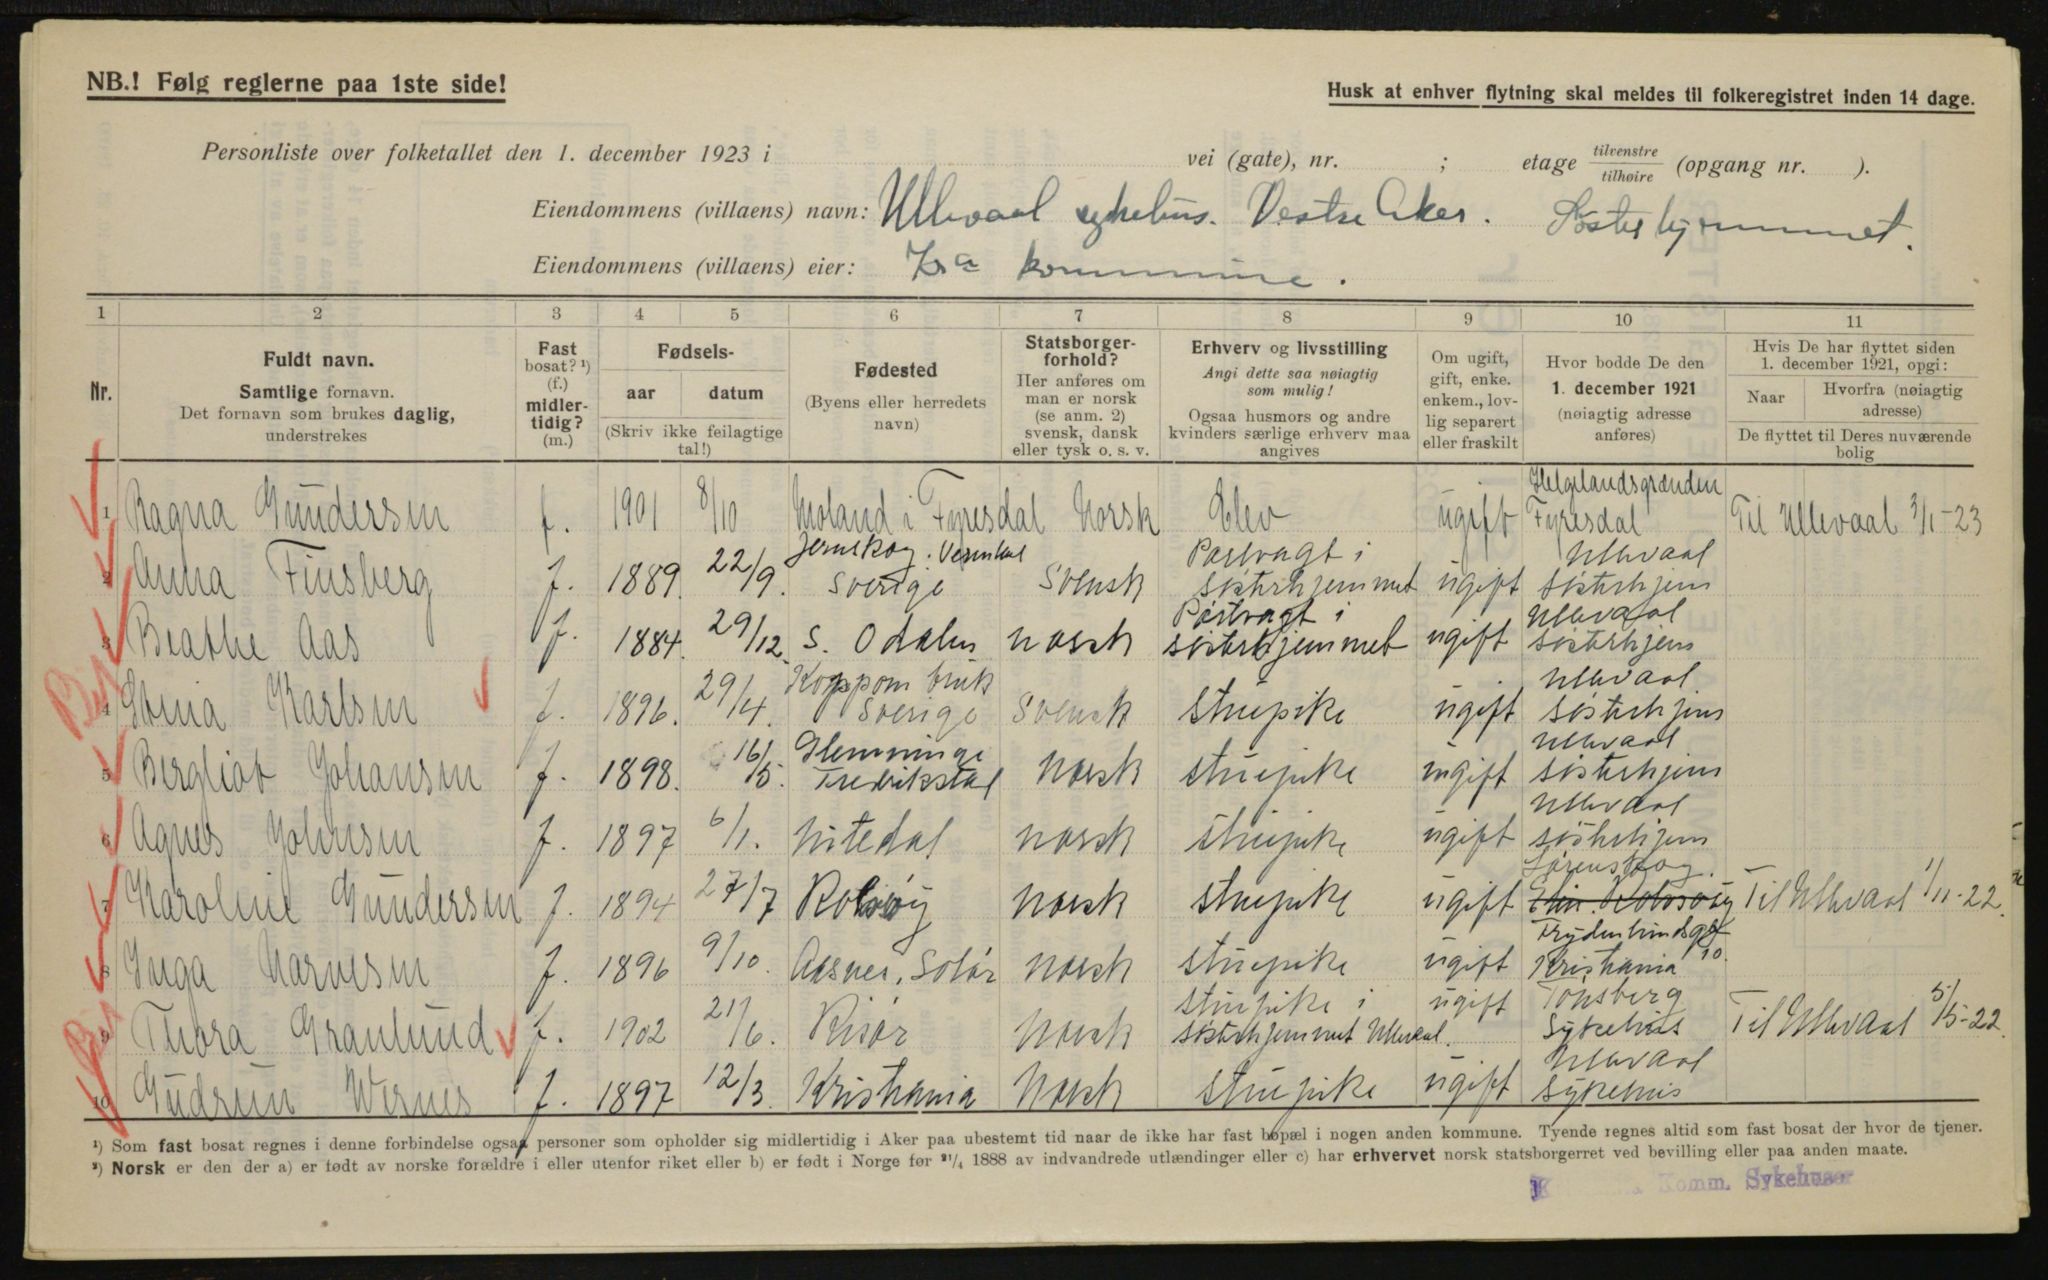 NB.! Følg reglerne paa 1ste side!
Husk at enhver flytning skal meldes til folkeregistret inden 14 dage.
Personliste over folketallet den 1. december 1923 i vei (gate), nr. ; etage tilvenstre tilhøire (opgang nr. ).
Eiendommens (villaens) navn: Ullevaal sykehus. Vestre Aker. Søsterhjemmet.
Eiendommens (villaens) eier: Kra kommune.
1 2 3 4 5 6 7 8 9 10 11
Nr.
Fuldt navn.
Samtlige fornavn.
Det fornavn som brukes daglig,
understrekes
Fast
bosat? ¹)
(f.)
midler-
tidig?
(m.)
Fødsels-
aar datum
(Skriv ikke feilagtige
tal!)
Fødested
(Byens eller herredets
navn)
Statsborger-
forhold?
Her anføres om
man er norsk
(se anm. 2)
svensk, dansk
eller tysk o. s. v.
Erhverv og livsstilling
Angi dette saa nøiagtig
som mulig!
Ogsaa husmors og andre
kvinders særlige erhverv maa
angives
Om ugift,
gift, enke.
enkem., lov-
lig separert
eller fraskilt
Hvor bodde De den
1. december 1921
(nøiagtig adresse
anføres)
Hvis De har flyttet siden
1. december 1921, opgi:
Naar
Hvorfra (nøiagtig
adresse)
De flyttet til Deres nuværende
bolig
1 Ragna Gundersen f. 1901 8/10 Moland i Fyresdal Norsk Elev ugift Helgelandsgrænden Fyresdal Til Ullevaal 3/1-23
2 Anna Finsberg f. 1889. 22/9. Jernskog. Vermland Sverige Svensk Portvagt i søsterhjemmet ugift Ullevaal søsterhjem
3 Beathe Aas f. 1884. 29/12. S. Odalen norsk Portvagt i søsterhjemmet ugift Ullevaal søsterhjem
4 Stina Karlsen f. 1896. 29/4. Koppom bruk Sverige Svensk stuepike ugift Ullevaal søsterhjem
5 Bergliot Johansen f. 1898. 16/5. Glemminge Fredrikstad Norsk stuepike ugift Ullevaal søsterhjem
6 Agnes Johnsen f. 1897 6/1. Nitedal norsk stuepike ugift Ullevaal søsterhjem
7 Karoline Gundersen f. 1894 27/7 Rolvsøy Norsk stuepike ugift Sørenskog. Til Ullevaal 1/11-22.
8 Inga Narvesen f. 1896 9/10. Aasnes, Solør Norsk stuepike ugift Frydenlundsgt 10. Kristiania
9 Thora Granlund f. 1902 21/6. Risør Norsk stuepike i søsterhjemmet Ullevaal. ugift Tønsberg Sykehus Til Ullevaal 5/5-22.
10 Gudrun Wernes f. 1897 12/3. Kristiania Norsk stuepike ugift Ullevaal sykehus
¹) Som fast bosat regnes i denne forbindelse ogsaa personer som opholder sig midlertidig i Aker paa ubestemt tid naar de ikke har fast bopæl i nogen anden kommune. Tyende regnes altid som fast bosat der hvor de tjener.
²) Norsk er den der a) er født av norske forældre i eller utenfor riket eller b) er født i Norge før ²¹/₄ 1888 av indvandrede utlændinger eller c) har erhvervet norsk statsborgerret ved bevilling eller paa anden maate.
Komm. Sykehuser